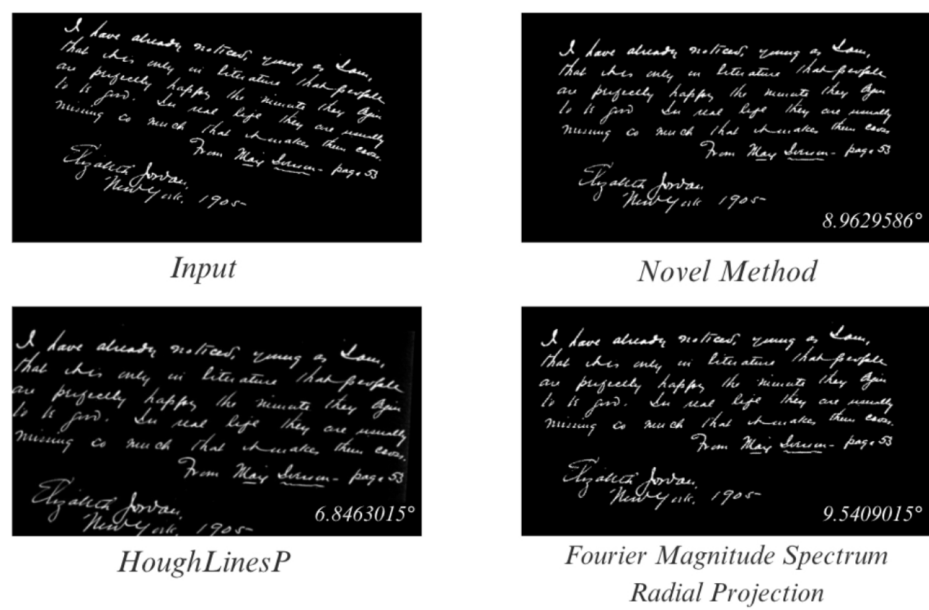 I have already noticed, young as I am,
that it is only in literature that people
are perfectly happy the minute they begin
to be good. In real life they are usually
missing so much that it makes them cross.
From May Iverson - page 53
Elizabeth Jordan,
New York, 1905-
Input
I have already noticed, young as I am,
that it is only in literature that people
are perfectly happy the minute they begin
to be good. In real life they are usually
missing so much that it makes them cross.
From May Iverson - page 53
Elizabeth Jordan,
New York, 1905-
8.9629586°
Novel Method
I have already noticed, young as I am,
that it is only in literature that people
are perfectly happy the minute they begin
to be good. In real life they are usually
missing so much that it makes them cross.
From May Iverson - page 53
Elizabeth Jordan,
New York, 1905-
6.8463015°
HoughLinesP
I have already noticed, young as I am,
that it is only in literature that people
are perfectly happy the minute they begin
to be good. In real life they are usually
missing so much that it makes them cross.
From May Iverson - page 53
Elizabeth Jordan,
New York, 1905-
9.5409015°
Fourier Magnitude Spectrum
Radial Projection